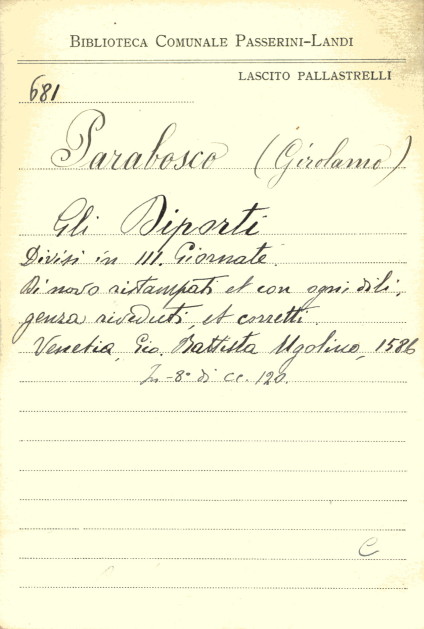 BIBLIOTECA COMUNALE PASSERINI-LANDI
LASCITO PALLASTRELLI
681
Parabosco (Girolamo)
Gli Diporti
Divisi in III. Giornate.
Di novo ristampati et con ogni dili,
genza riveduti, et corretti.
Venetia, Gio. Battista Ugolino, 1586
In-8° di cc. 120.
C